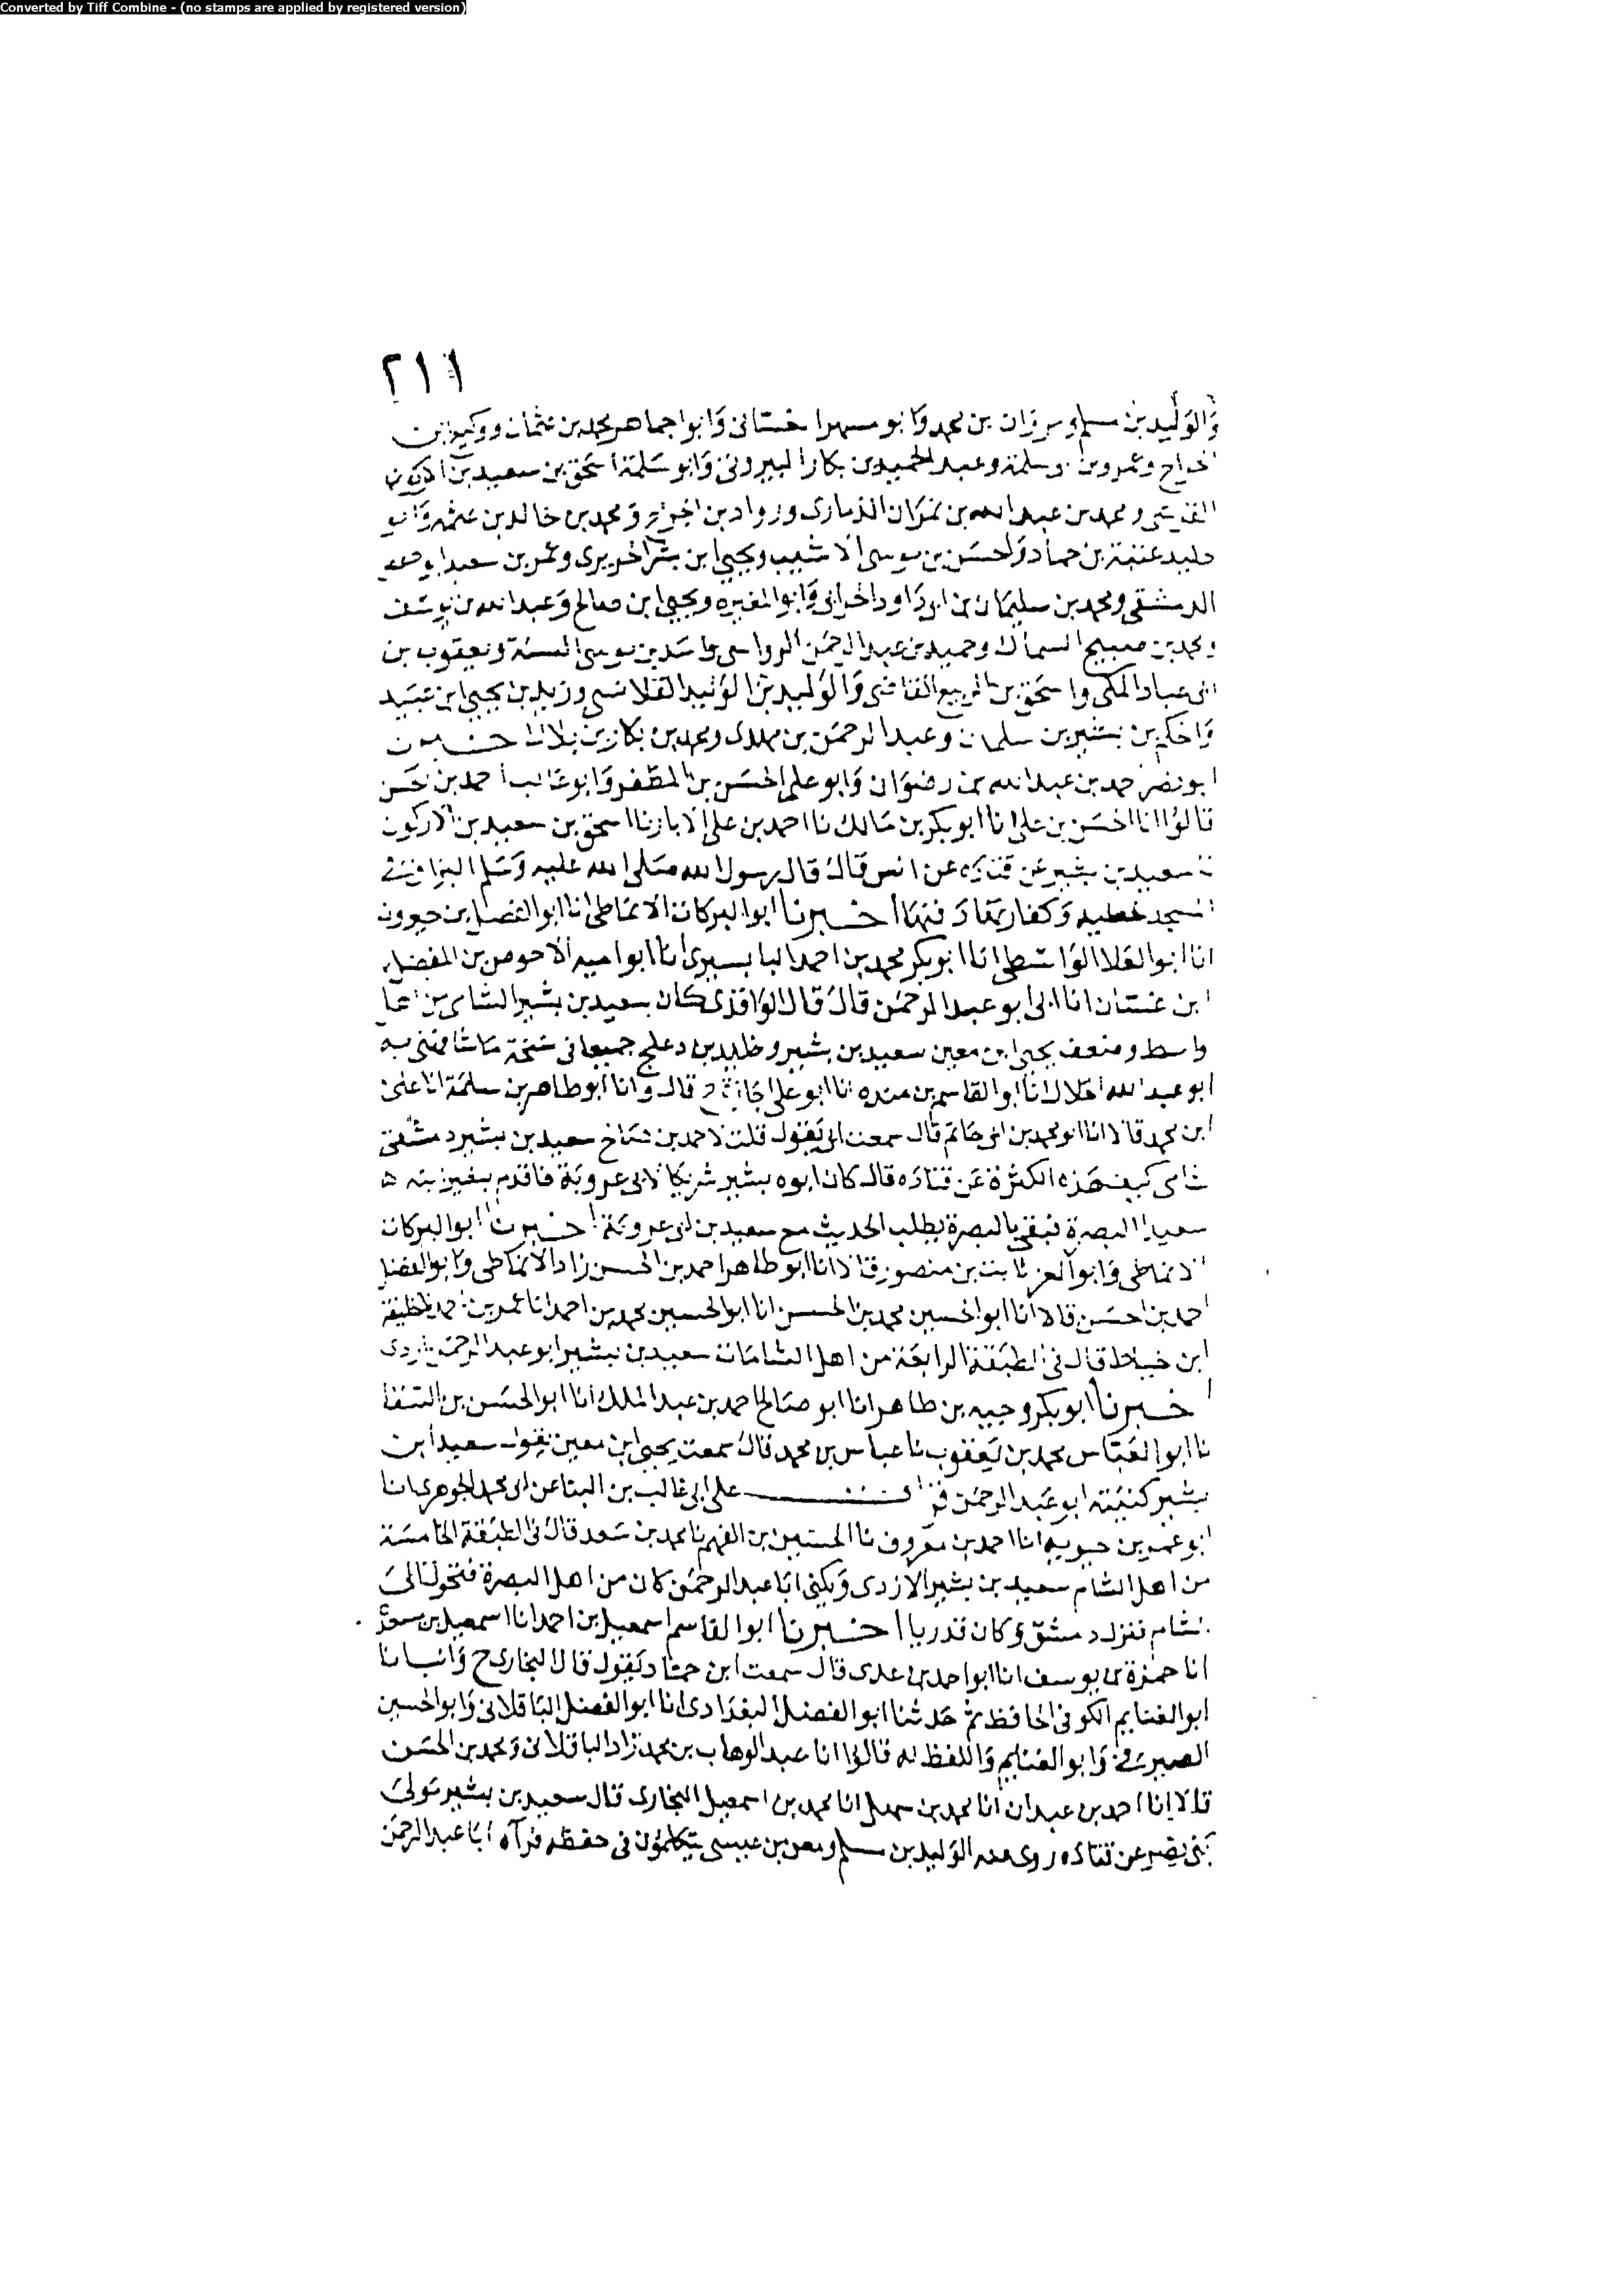 Converted by Tiff Combine - (no stamps are applied by registered version)
٢١١
والوليد بن مسلم ومروان بن محمد وابو مسهر الغساني وابوا جماهر محمد بن عثمان ووكيع ابن
الجراح وعمرو بن ابي سلمة وعبد الحميد بن بكار البيروتي وابو سلمة اسحق بن سعيد بن الاركون
القرشي ومحمد بن عبد الله بن نمران الذماري ورواد بن الجراح ومحمد بن خالد بن عثمه وابو
خليد عتبة بن حماد والحسن بن موسى الاشيب ويحيى ابن بشر الحريري وعمر بن سعيد ابو حفص
الدمشقي ومحمد بن سليمان بن ابي داود الحراني وابو المغيره ويحيى ابن صالح وعبد الله بن يوسف
ومحمد بن صبيح السماك وحميد بن عبد الرحمن الرواسي واسد بن موسى السنة ويعقوب بن
ابي عباد المكي واسحق بن الربيع القاضي والوليد بن الوليد القلانسي وزيد بن يحيى ابن عبيد
والحكم بن بشير بن سلمان وعبد الرحمن بن مهدي ومحمد بن بكار بن بلال اخبرنا
ابو نصر احمد بن عبد الله بن رضوان وابو علي الحسن بن المظفر وابو غالب احمد بن الحسن
قالوا انا الحسن بن علي انا ابو بكر بن مالك نا احمد بن علي الابار نا اسحق بن سعيد بن الاركون
نا سعيد بن بشير عن قتادة عن انس قال قال رسول الله صلى الله عليه وسلم البزاق في
المسجد خطيه وكفارتها دفنها اخبرنا ابو البركات الانماطي انا ابو الفضل بن خيرون
انا ابو العلا الواسطي انا ابو بكر محمد بن احمد البابسيري انا ابو اميه الاحوص بن المفضل
ابن غسان انا ابي ابو عبد الرحمن قال قال الواقدي كان سعيد بن بشير الشامي من
واسط وضعف يحيى ابن معين سعيد بن بشير وخليد بن دعلج جميعا في نسخة ما شافهني به
ابو عبد الله الخلال انا ابو القاسم بن منده انا ابو علي اجازة ح قال وانا ابو طاهر بن سلمة انا علي
ابن محمد قالا انا ابو محمد بن ابي حاتم قال سمعت ابي يقول قلت لاحمد بن صالح سعيد بن بشير دمشقي
شامي كيف هذه الكثرة عن قتادة قال كان ابوه بشير شريكا لابي عروبة فاقدم بشير ابنه
سعيدا البصرة فبقي بالبصرة يطلب الحديث مع سعيد بن ابي عروبة اخبرنا ابو البركات
الانماطي وابو العز ثابت بن منصور قالا انا ابو طاهر احمد بن الحسن زاد الانماطي وابو الفضل
احمد بن الحسن قالا انا ابو الحسين محمد بن الحسن انا ابو الحسين محمد بن احمد انا عمر بن احمد نا خليفة
ابن خياط قال في الطبقة الرابعة من اهل الشامات سعيد بن بشير ابو عبد الرحمن
اخبرنا ابو بكر وجيه بن طاهر انا ابو صالح احمد بن عبد الملك انا ابو الحسن بن السقا
نا ابو العباس محمد بن يعقوب نا عباس بن محمد قال سمعت يحيى ابن معين يقول سعيد ابن
بشير كنيته ابو عبد الرحمن قرات على ابي غالب بن البنا عن ابي محمد الجوهري انا
ابو عمر بن حيويه انا احمد بن معروف نا الحسين بن الفهم نا محمد بن سعد قال في الطبقة الخامسة
من اهل الشام سعيد بن بشير الازدي ويكنى ابا عبد الرحمن كان من اهل البصرة فتحول الى
الشام فنزل دمشق وكان قدريا اخبرنا ابو القاسم اسمعيل بن احمد انا اسمعيل بن مسعدة
انا حمزة بن يوسف انا ابو احمد بن عدي قال سمعت ابن حماد يقول قال البخاري ح وانبانا
ابو الغنايم الكوفي الحافظ ثم حدثنا ابو الفضل البغدادي انا ابو الفضل الباقلاني وابو الحسين
الصيرفي وابو الغنايم واللفظ له قالوا انا عبد الوهاب بن محمد زاد الباقلاني ومحمد بن الحسن
قالا انا احمد بن عبدان انا محمد بن سهل انا محمد بن اسمعيل البخاري قال سعيد بن بشير مولى
بني نصر عن قتاده روى عنه الوليد بن مسلم ومعن بن عيسى يتكلمون في حفظه نراه ابا عبد الرحمن